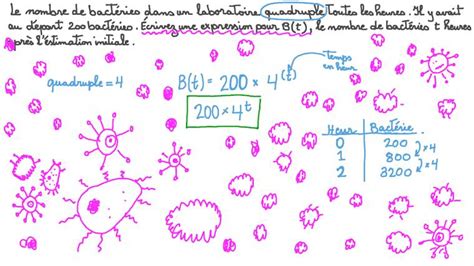 Le nombre de bactéries dans un laboratoire quadruple toutes les heures. Il y avait
au départ 200 bactéries. Écrivez une expression pour B(t), le nombre de bactéries t heures
après l'éstimation initiale.
quadruple = 4
B(t) = 200 × 4^(t)
temps
en heure
200 × 4^t
Heur Bactérie
0 200
×4
1 800
×4
2 3200